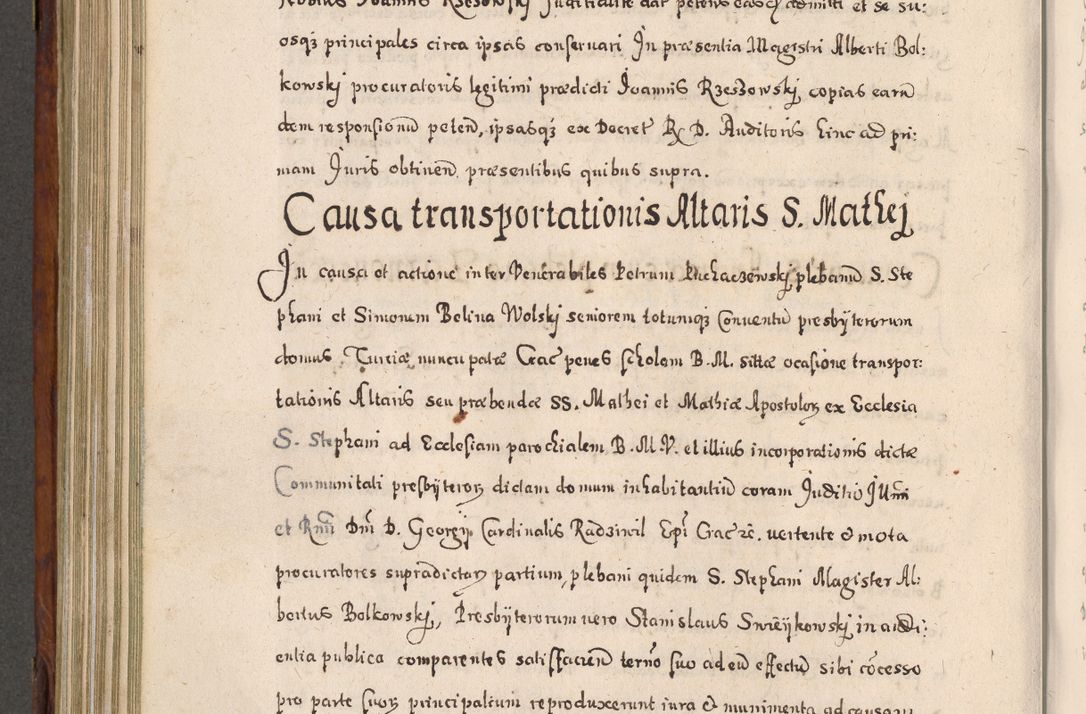 Nobilis Joannis Rzeszowskj Judicialit dat petens eas admitti et se su:
osqȝ principales circa ipsas conservari In præsentia Magistri Alberti Bol:
kowskj procuratoris legitimi prædicti Joannis Rzeszowskj copias earū
dem responsionū peten, ipsasqȝ ex Decret R D. Auditoris hinc ad pri:
mam Juris obtinen præsentibus quibus supra.
Causa transportationis Altaris S. Mathej
In causa et actione inter Venerabiles Petrum Puchaczewskj plebanū S. Ste
phani et Simonem Belina Wolskj seniorem totumqȝ Conventū presbÿterorum
domus Turciæ nuncupatæ Crac penes scholam B. M. sittæ ocasione transpor:
tationis Altaris seu præbendæ SS. Mathei et Mathiæ Apostoloꝝ ex Ecclesia
S. Stephani ad Ecclesiam parochialem B. M. V. et illius incorporationis dictæ
Communitati presbÿteroꝝ dictam domum inhabitantiū coram Juditio Jllmi
et Rmi Dni D. Georgÿ Cardinalis Radziwil Epi Crac ꝛc. vertente & mota
procuratores supradictaꝝ partium, plebani quidem S. Stephani Magister Al:
bertus Bolkowskj, Presbÿterorum vero Stanislaus Swiēÿkowskj in audi:
entia publica comparentes satisfacien terno suo ad eū effectū sibi cōcesso
pro parte suoꝝ principalium reproduxerunt iura & munimenta ad causam